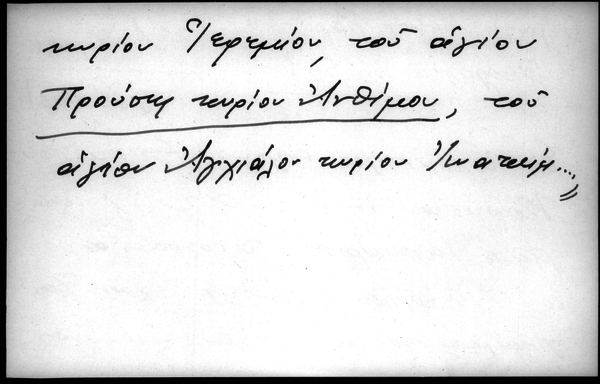 κυρίου Ἱερεμίου, τοῦ ἁγίου
Προύσης κυρίου Ἀνθίμου, τοῦ
ἁγίου Ἀγχιάλου κυρίου Ἰωακείμ....»